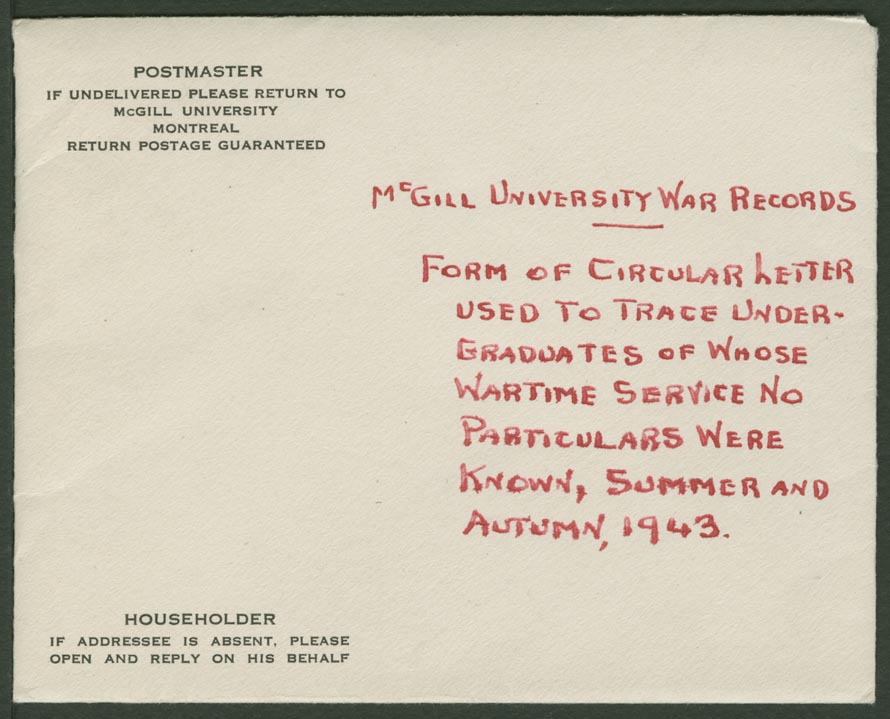 POSTMASTER
IF UNDELIVERED PLEASE RETURN TO
McGILL UNIVERSITY
MONTREAL
RETURN POSTAGE GUARANTEED
McGILL UNIVERSITY WAR RECORDS
FORM OF CIRCULAR LETTER
USED TO TRACE UNDER-
GRADUATES OF WHOSE
WARTIME SERVICE NO
PARTICULARS WERE
KNOWN, SUMMER AND
AUTUMN, 1943.
HOUSEHOLDER
IF ADDRESSEE IS ABSENT, PLEASE
OPEN AND REPLY ON HIS BEHALF